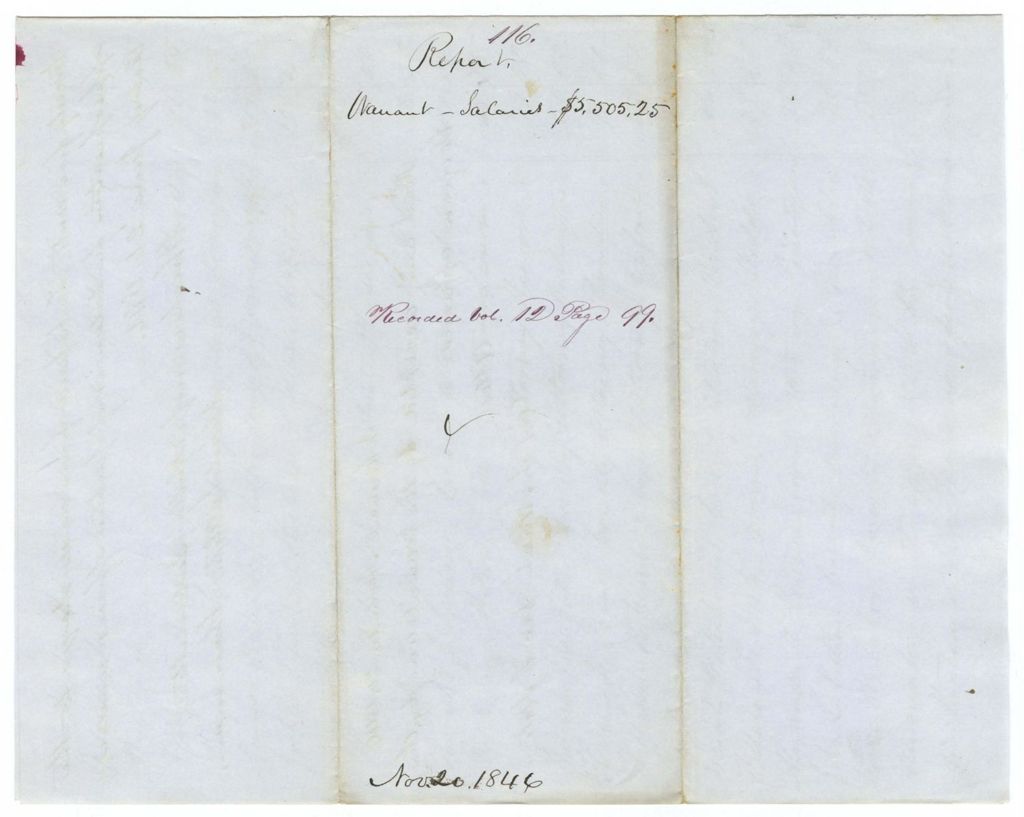 116.
Report.
Warrant - Salaries - $5,505,25
Recorded Vol. 12 Page 99.
Nov. 20. 1846